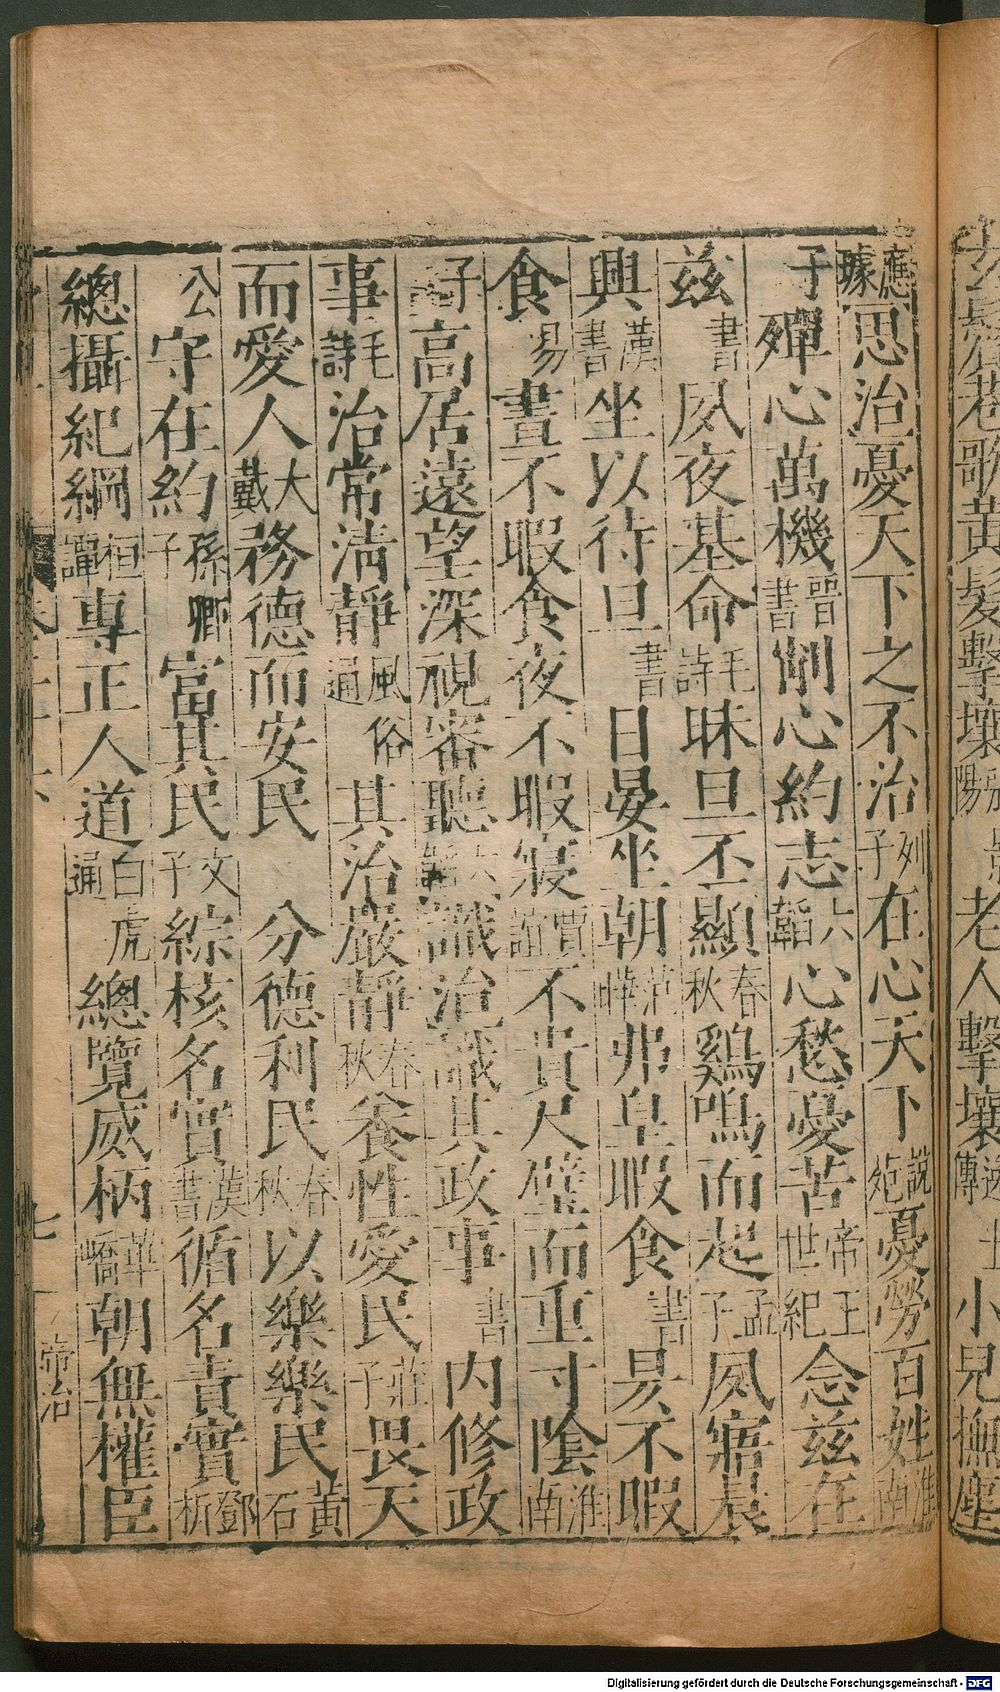 應璩思治憂天下之不治列子在心天下說苑憂勞百姓淮南
子殫心萬機晉書劌心約志六韜心愁憂苦帝王世紀念兹在
兹書夙夜基命毛詩昧旦丕顯春秋鷄鳴而起孟子夙寤晨
興漢書坐以待旦書日晏坐朝弗皇暇食書易不暇
食易晝不暇食夜不暇寢賈誼不貴尺璧而重寸陰淮南
子高居遠望深視審聽六韜識治識其政事書內修政
事毛詩治常淸靜風俗通其治嚴靜春秋養性愛民莊子畏天
而愛人大戴務德而安民 分德利民春秋以樂樂民黃石
公守在約孫卿子富其民文子綜核名實漢書循名責實鄧析
總攝紀綱桓譚專正人道白虎通總覽威柄華嶠朝無權臣
七
帝治
巷歌黃髮擊壤 老人擊壤 小兒撫塵
Digitalisierung gefördert durch die Deutsche Forschungsgemeinschaft - DFG